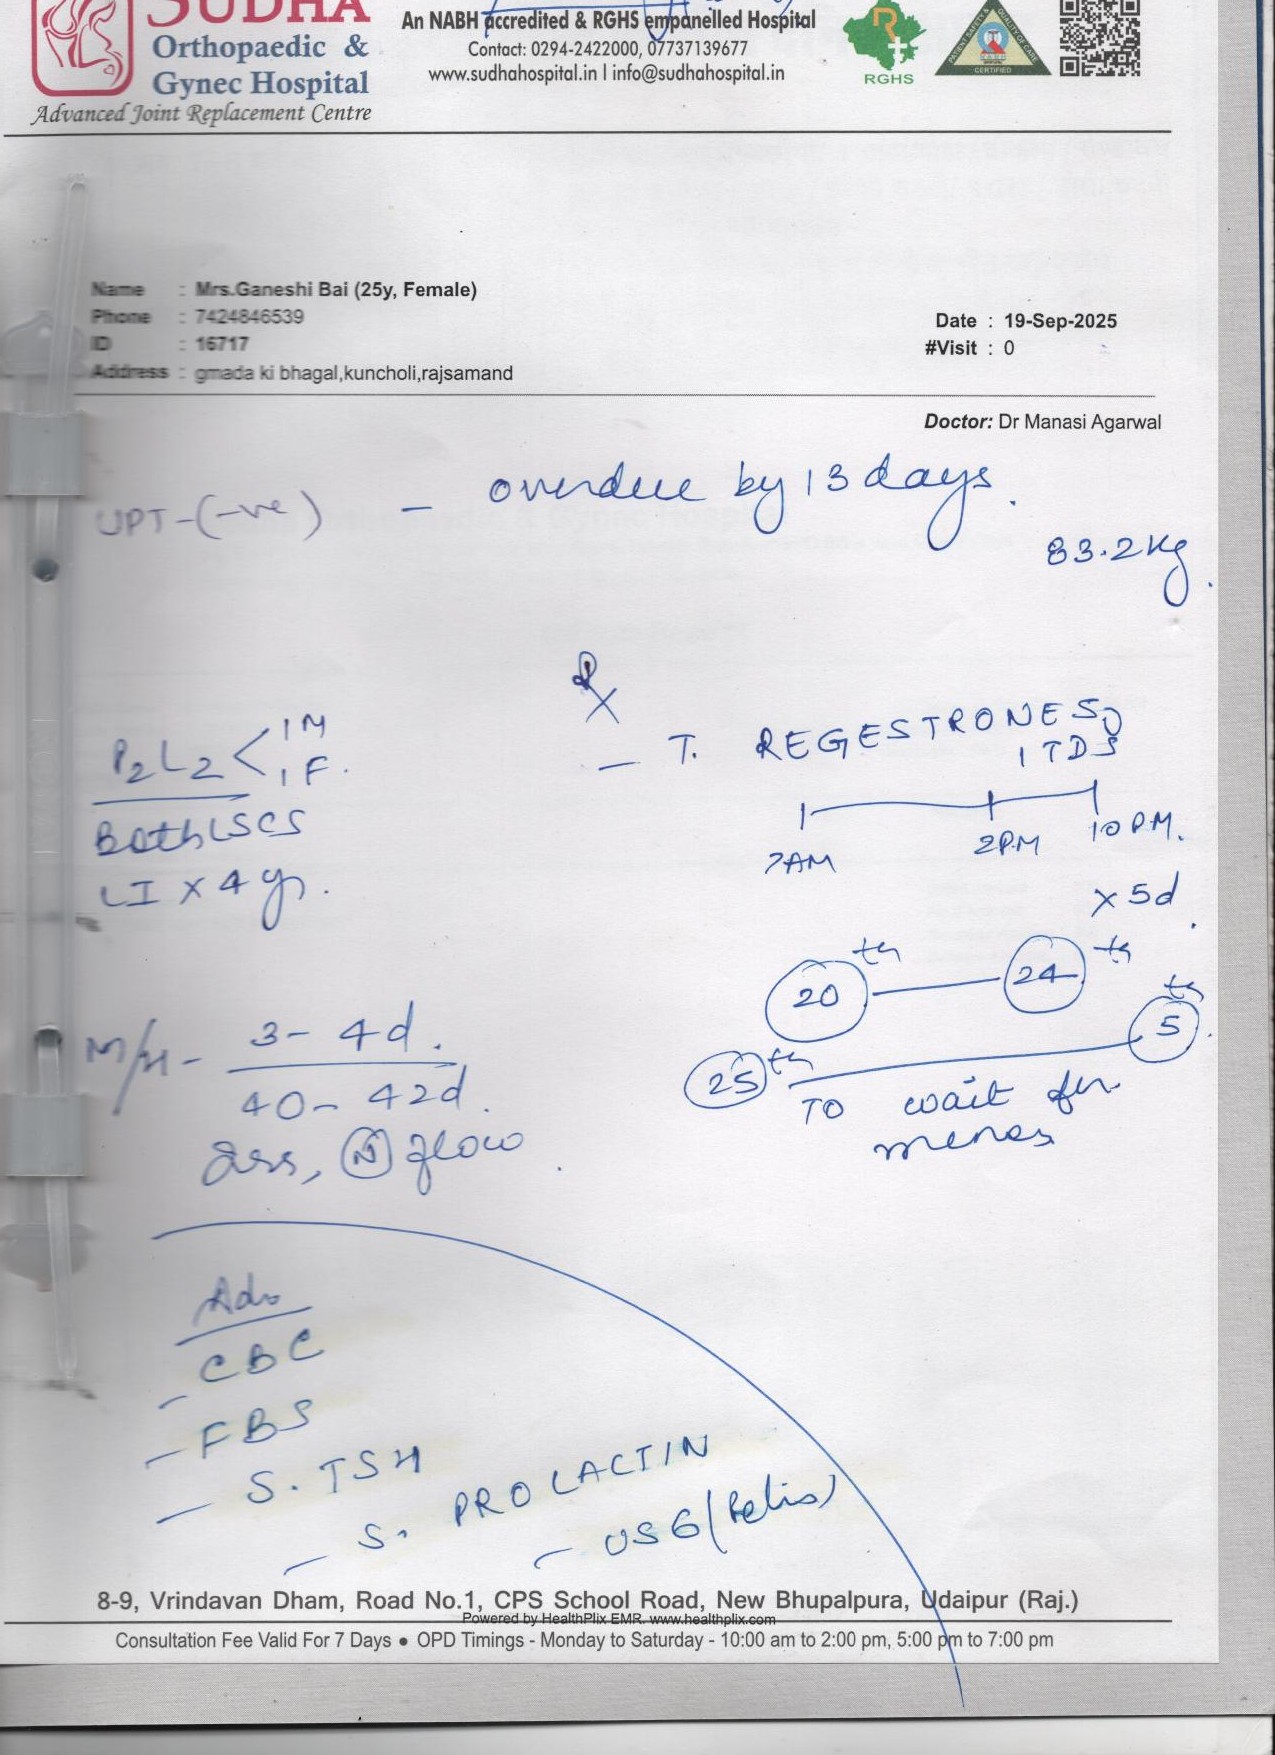 SUDHA
Orthopaedic &
Gynec Hospital
Advanced Joint Replacement Centre
An NABH accredited & RGHS empanelled Hospital
Contact: 0294-2422000, 07737139677
www.sudhahospital.in | info@sudhahospital.in
RGHS
CERTIFIED
Name : Mrs.Ganeshi Bai (25y, Female)
Phone : 7424846539
ID : 16717
Address : gmada ki bhagal,kuncholi,rajsamand
Date : 19-Sep-2025
#Visit : 0
Doctor: Dr Manasi Agarwal
UPT-(-ve) - overdue by 13 days.
83.2 kg.
Rx
- T. REGESTRONE 5
1 TDS
7AM 2PM 10 PM.
x 5d.
20th - 24th
25th - 5th.
TO wait for
menses
P2L2 < 1M
1F.
Both LSCS
LI x 4 yr.
M/H - 3-4d.
40-42d.
N flow
Adv
- CBC
- FBS
- S. TSH
- S. PROLACTIN
- USG (Pelvis)
8-9, Vrindavan Dham, Road No.1, CPS School Road, New Bhupalpura, Udaipur (Raj.)
Powered by HealthPlix EMR. www.healthplix.com
Consultation Fee Valid For 7 Days ● OPD Timings - Monday to Saturday - 10:00 am to 2:00 pm, 5:00 pm to 7:00 pm